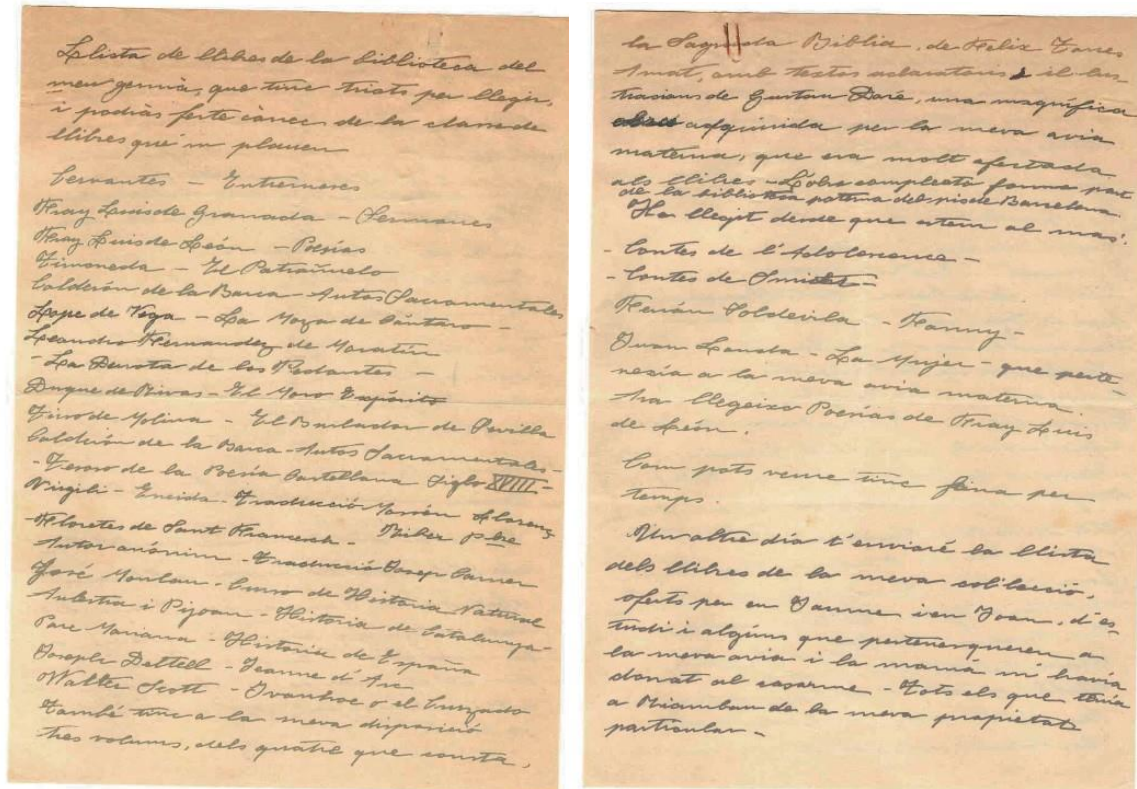 Llista de llibres de la biblioteca del
meu germà, que tinc triats per llegir,
i podràs ferte càrrec de la classe de
llibres que m plauen
Cervantes – Entremeses
Fray Luis de Granada – Sermones
Fray Luis de León – Poesías
Timoneda – El Patrañuelo
Calderón de la Barca – Autos Sacramentales
Lope de Vega – La Moza de Cántaro –
Leandro Fernandez de Moratín
– La Derrota de los Pedantes –
Duque de Rivas – El Moro Expósito
Tirso de Molina – El Burlador de Sevilla
Calderón de la Barca – Autos Sacramentales –
– Tesoro de la Poesía Castellana Siglo XVIII –
Virgili – Eneida – Traducció Mossén Llorenç
Riber pbre
– Floretes de Sant Francesch –
Autor anónim – Traducció Josep Carner
José Monlau – Curso de Historia Natural
Aulestia i Pijoan – Historia de Catalunya –
Pare Mariana – Historia de España
Joseph – Jeanne d'Arc
Walter Scott – Ivanhoe o el Cruzado
També tinc a la meva disposició
tres volums, dels quatre que consta,
la Sagrada Biblia, de Felix Torres
Amat, amb textos aclaratoris i il·lus-
tracions de Gustau Doré, una magnífica
adquirida per la meva avia
materna, que era molt afectada
als llibres – L'obra completa forma part
de la biblioteca paterna del pis de Barcelona.
He llegit desde que estem al mas:
– Contes de l'Adolescence –
– Contes de
Ferrán Soldevila – Fanny –
Juan – La Mujer – que perte-
nesía a la meva avia materna.
Ara llegeixo Poesías de Fray Luis
de León.
Com pots veure tinc feina per
temps.
Un altre día t'enviaré la llista
dels llibres de la meva col·lecció,
oferts per en Jaume i en Joan, d'es-
tudi i algúns que pertenesqueren a
la meva avia i la mamá m'havía
donat al casarme – Tots els que tenía
a de la meva propietat
particular –